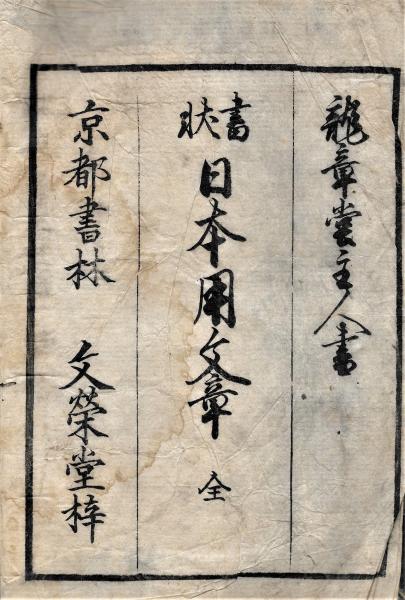 龍章堂主人書
書状日本用文章 全
京都書林 文榮堂梓